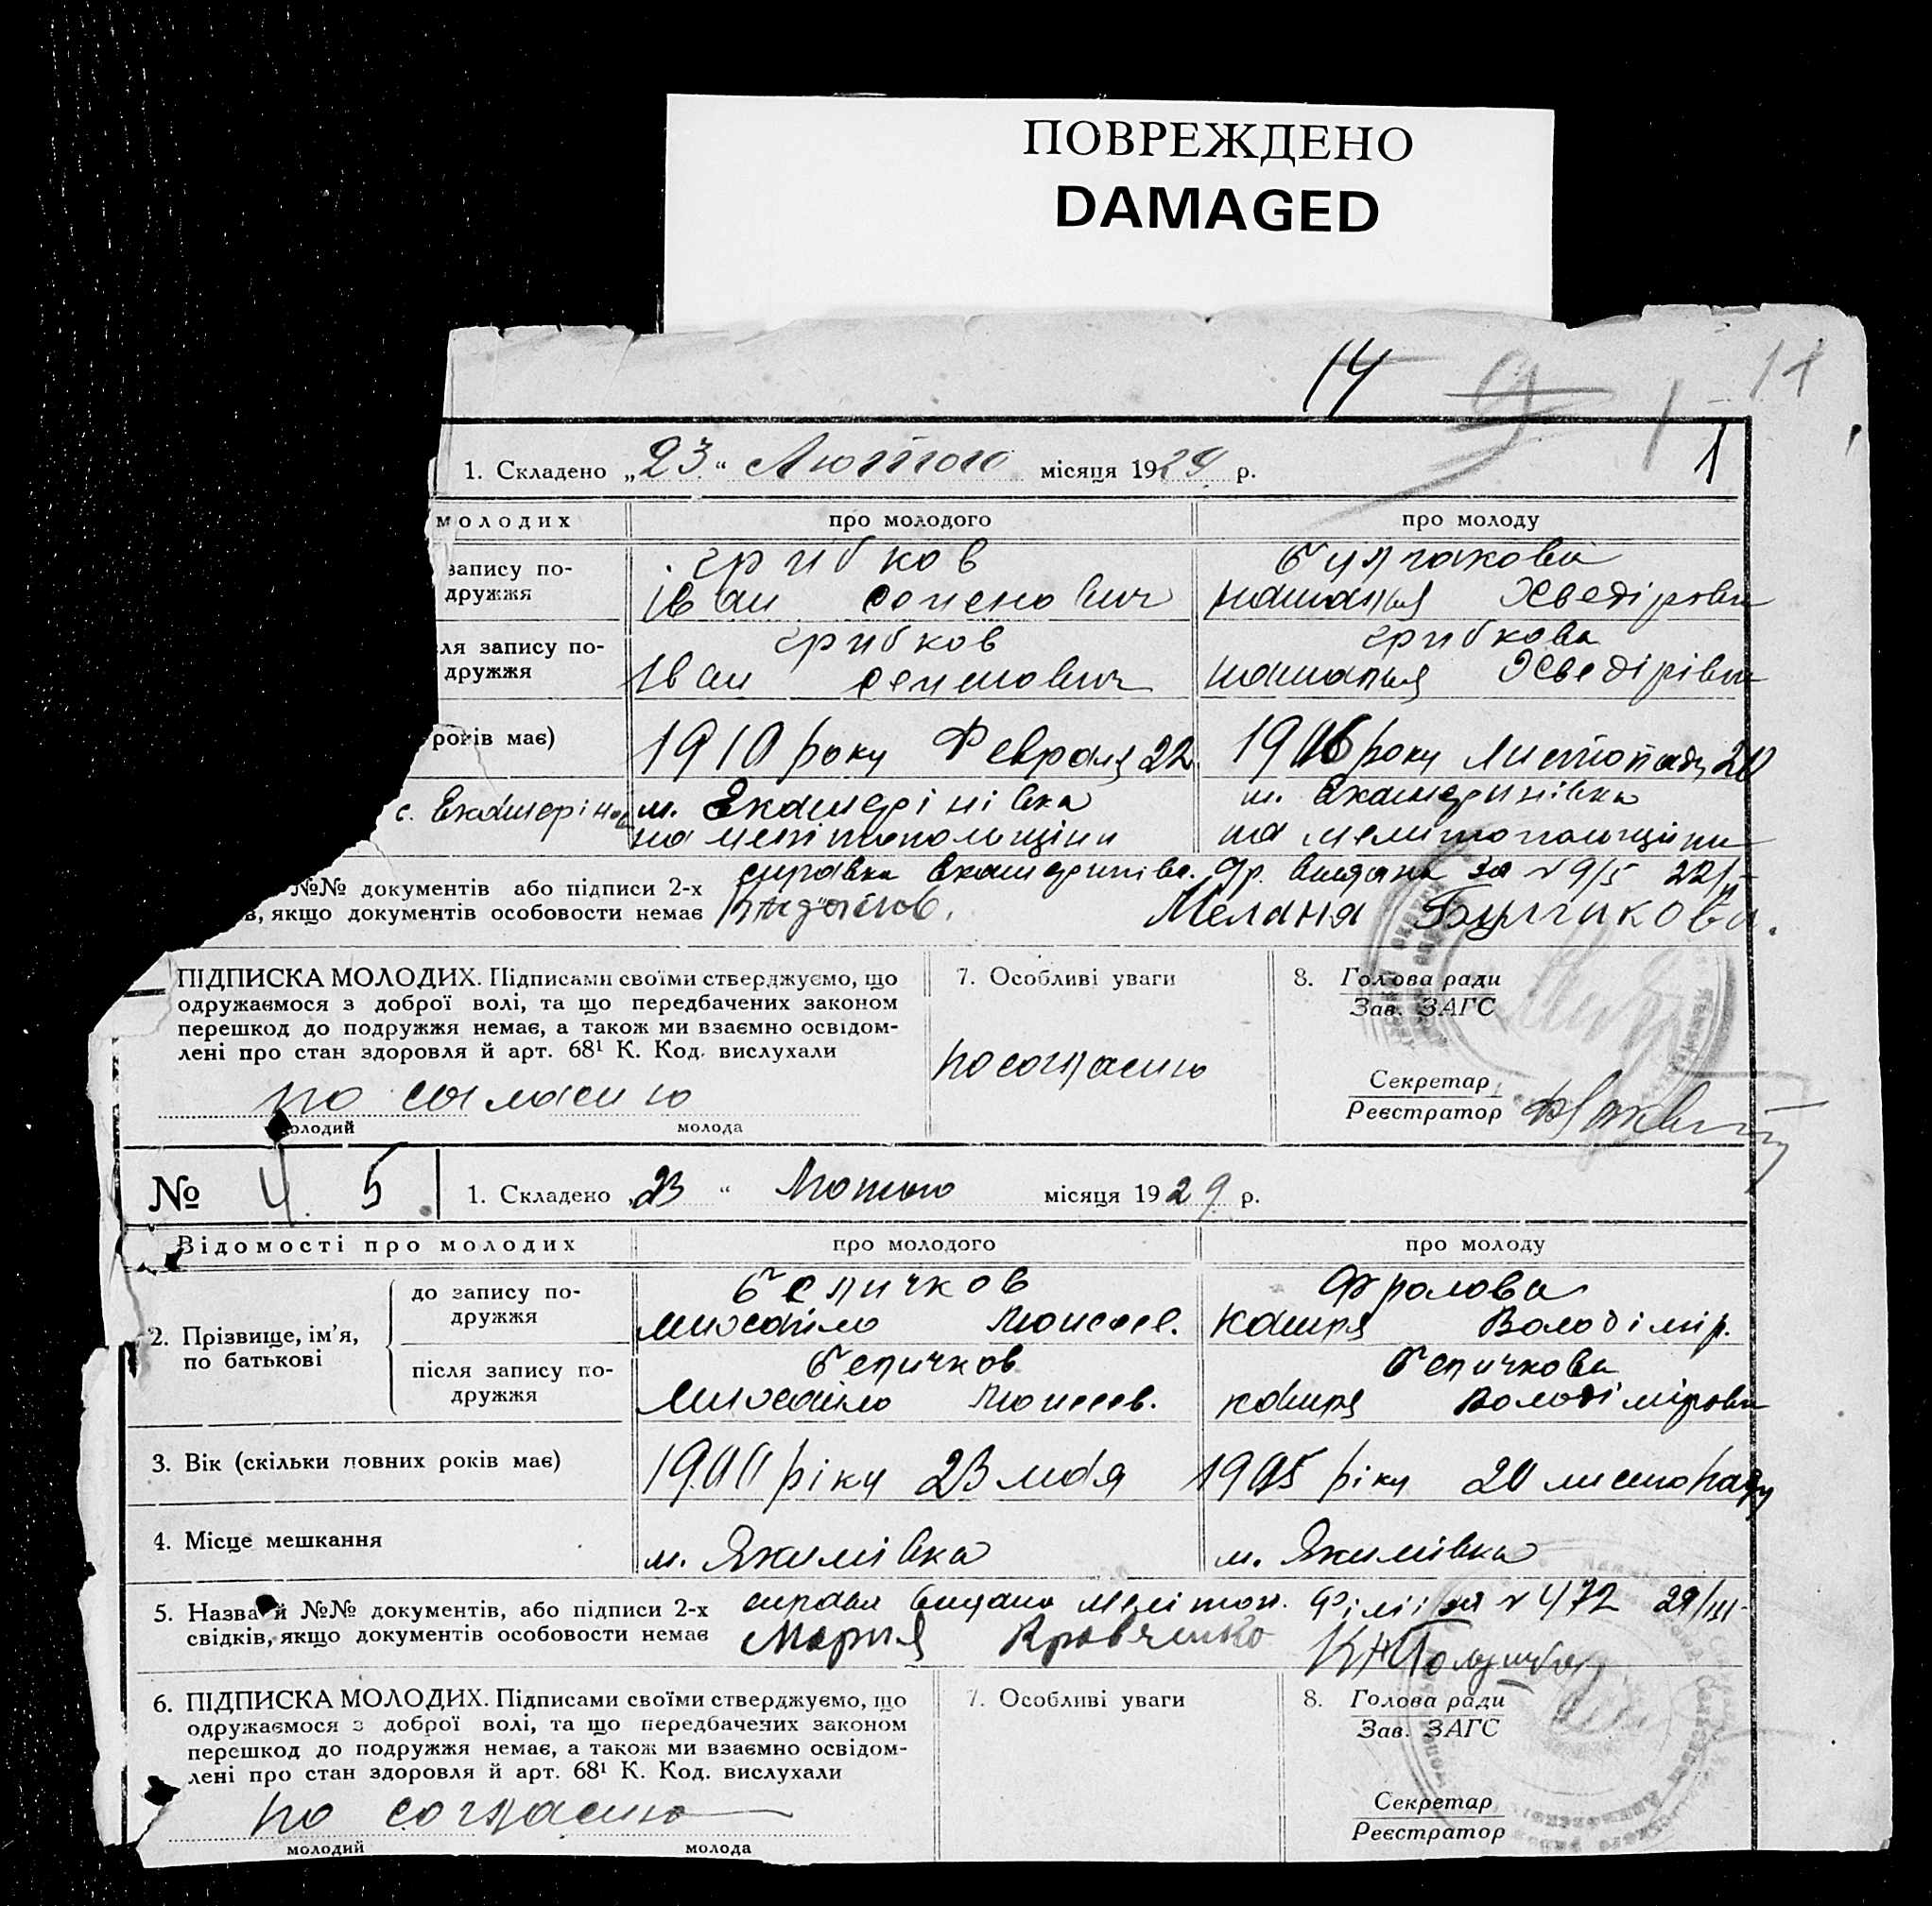 ПОВРЕЖДЕНО
DAMAGED
14 9 1 11
1
1. Складено „23“ Лютого місяця 1929 р.
молодих про молодого про молоду
запису по-
дружжя
Грибков Булгакова
Іван Семенович Наталья Хведіровн
ля запису по-
дружжя
Грибков Грибкова
Іван Семенович Наталья Хведірівн
років має) 1910 року Февраля 22 1906 року Листопаду 20
с. Екатерінов м. Екатерінівка м. Екатеринівка
на мелітопольщіни на мелітопольщіни
№№ документів або підписи 2-х справка Екатеринівс. видана за № 9/5 22/
в, якщо документів особовости немає Мелания Булгакова.
ПІДПИСКА МОЛОДИХ. Підписами своїми стверджуємо, що
одружаємося з доброї волі, та що передбачених законом
перешкод до подружжя немає, а також ми взаємно освідом-
лені про стан здоровля й арт. 68¹ К. Код. вислухали
по согласию
молодий молода
7. Особливі уваги
по согласию
8. Голова ради
Зав. ЗАГС
Секретар
Реєстратор
№ 4. 5. 1. Складено „23“ Лютого місяця 1929 р.
Відомості про молодих про молодого про молоду
2. Прізвище, ім’я,
по батькові
до запису по-
дружжя
Беличков Фролова
Михайло Моисеев. Катря Володімір.
після запису по-
дружжя
Беличков Беличкова
Михайло Моисеев. Катря Володіміровн
3. Вік (скільки повних років має) 1900 ріку 23 мая 1905 ріку 20 листопаду
4. Місце мешкання м. Якимівка м. Якимівка
5. Назва й №№ документів, або підписи 2-х справка видана мелітоп. філії за № 472 29/III
свідків, якщо документів особовости немає Мария Кравченко
6. ПІДПИСКА МОЛОДИХ. Підписами своїми стверджуємо, що
одружаємося з доброї волі, та що передбачених законом
перешкод до подружжя немає, а також ми взаємно освідом-
лені про стан здоровля й арт. 68¹ К. Код. вислухали
по согласию
молодий молода
7. Особливі уваги
8. Голова ради
Зав. ЗАГС
Секретар
Реєстратор